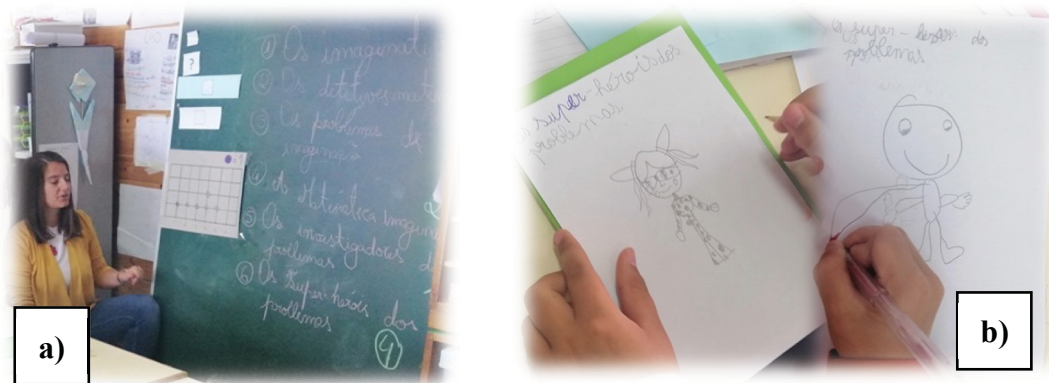 ① Os imaginati
② Os detetives mate
③ Os problemas de
imaginação
④ A Matemática imagin
⑤ Os investigadores d
problemas
⑥ Os Super-heróis dos
problemas
4
?
a)
super-heróis dos
problemas
Os super-heróis dos
problemas
b)